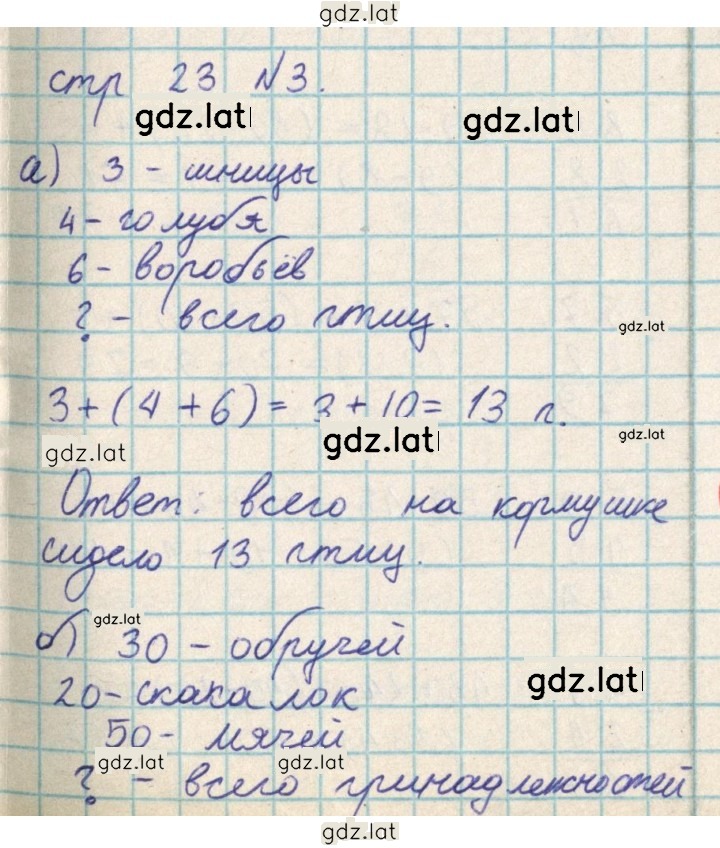 gdz.lat
стр 23 №3.
gdz.lat gdz.lat
а) 3 - синицы
4 - голубя
6 - воробьёв
? - всего птиц.
gdz.lat
3+(4+6)= 3+10= 13 п.
gdz.lat gdz.lat gdz.lat
Ответ: всего на кормушке
сидело 13 птиц.
gdz.lat
б) 30 - обручей
gdz.lat
20 - скакалок
50 - мячей
gdz.lat gdz.lat
? - всего принадлежностей
gdz.lat